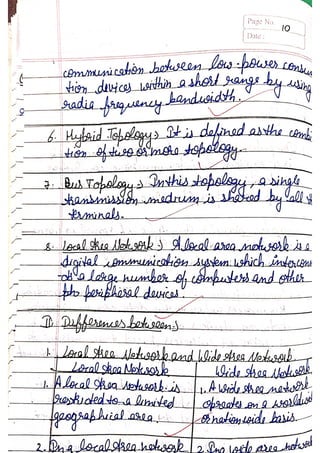 Page No. 10
Date :
communication between low-power consum
tion devices within a short range by using
radia frequency bandwidth.
6. Hybrid Topology → It is defined as the combi
tion of two or more topology.
7. Bus Topology → In this topology, a single
transmission medium is shared by all t
terminals.
8. Local Area Network → A local area network is a
digital communication system which intercon
a large number of computers and other
peripheral devices.
II. Differences between →
1. Local Area Network and Wide Area Network.
Local Area Network
Wide Area Network
1. A local Area network is
1. A wide area network
restricted to a limited
operates on a worldwid
geographical area.
or nationwide basis.
2. In a local Area network
2. In a wide area network